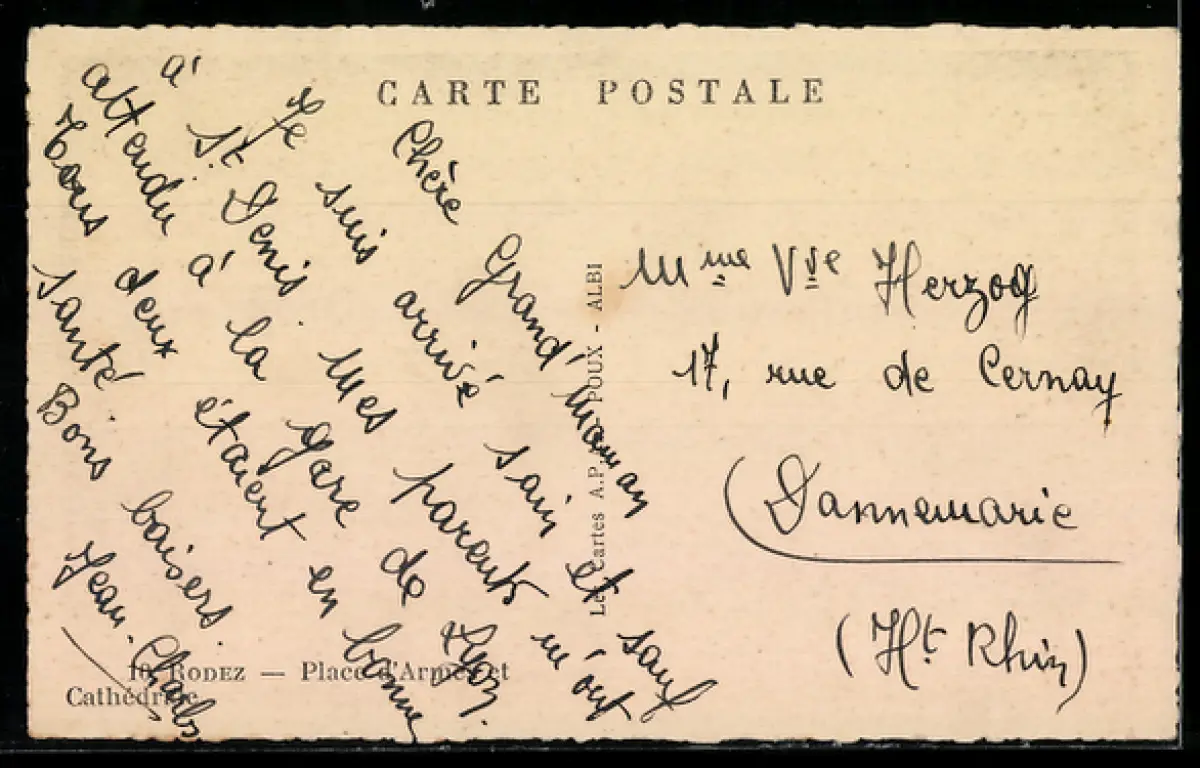 CARTE POSTALE
Chère Grand'Maman
Je suis arrivé sain et sauf
à St Denis Mes parents m'ont
attendu à la gare de Lyon.
Tous deux étaient en bonne
santé
Bons baisers.
Jean-Charles
Mme Vve Herzog
17, rue de Cernay
Dannemarie
(Ht Rhin)
Les Cartes A.P. POUX - ALBI
10 RODEZ — Place d'Armes et
Cathédrale